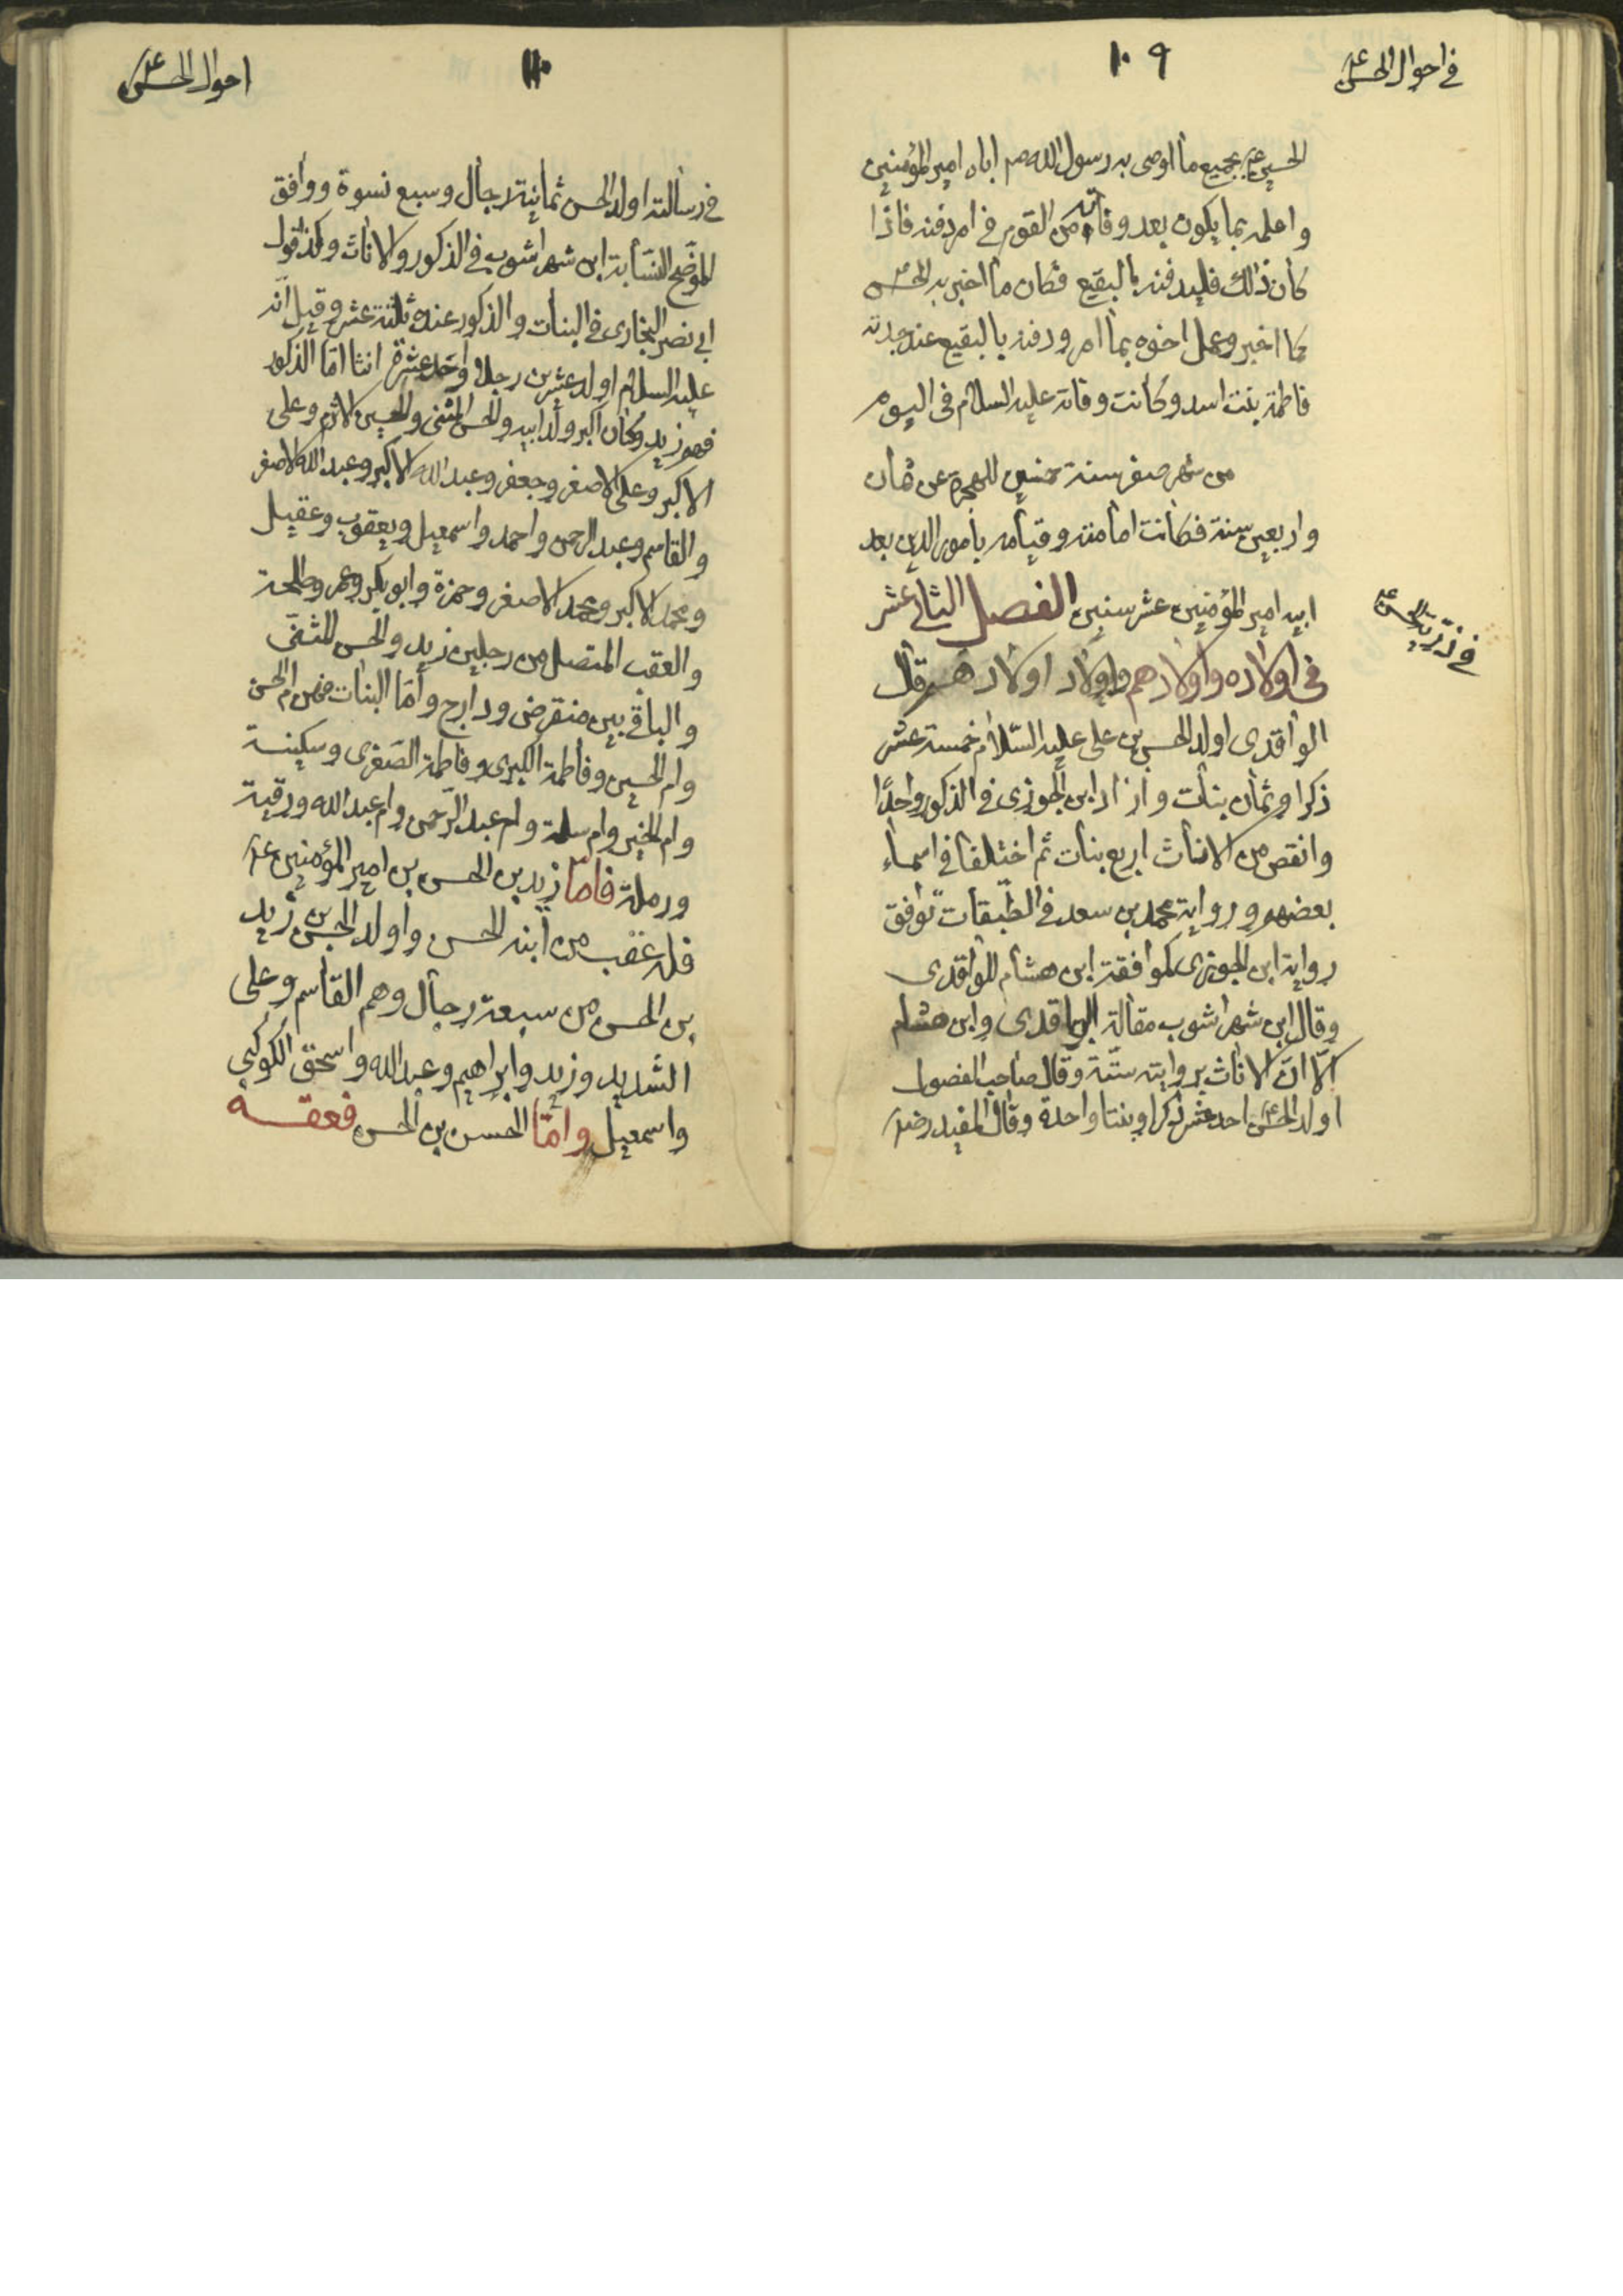 في احوال الحسن ع
١٠٩
الحسين ع بجميع ما اوصى به رسول الله ص اباه امير المؤمنين
واعلمه بما يكون بعد وفاته من القوم في امر دفنه فاذا
كان ذلك فليدفنه بالبقيع فكان ما اخبر به الحسن ع
كما اخبر وعمل اخوه بما امر ودفنه بالبقيع عند جدته
فاطمة بنت اسد وكانت وفاته عليه السلام في اليوم
من شهر صفر سنة خمسين للهجرة عن ثمان
واربعين سنة فكانت امامته وقيامه بامور الدين بعد
ابيه امير المؤمنين عشر سنين الفصل الثاني عشر
في ذرية الحسن ع
في اولاده واولادهم واولاد اولادهم قال
الواقدي اولد الحسن بن علي عليه السّلام خمسة عشر
ذكرا وثمان بنات وازاد ابن الجوزي في الذكور واحدًا
وانقص من الاناث اربع بنات ثم اختلفا في اسماء
بعضهم ورواية محمد بن سعد في الطّبقات توافق
رواية ابن الجوزي كموافقة ابن هشام للواقدي
وقال ابن شهراشوب مقالة الواقدي وابن هشام
الّا انّ الاناث بروايته ستّة وقال صاحب الفصول
اولد الحسن ع احد عشر ذكرا وبنتا واحدة وقال المفيد رض
احوال الحسن ع
١١٠
في رسالته اولد الحسن ثمانية رجال وسبع نسوة ووافق
الموضح النسّابة ابن شهراشوب في الذكور والاناث وكذا قول
ابي نصر البخاري في البنات والذكور عنده ثلثة عشر وقيل انّه
عليه السلام اولد عشرين رجلا واحد عشرة انثا امّا الذكور
فهم زيد وكان اكبر ولد ابيه والحسن المثنى والحسين الاثرم وعلي
الاكبر وعلي الاصغر وجعفر وعبد الله الاكبر وعبد الله الاصغر
والقاسم وعبد الرحمن واحمد واسمعيل ويعقوب وعقيل
ومحمد الاكبر ومحمد الاصغر وحمزة وابو بكر وعمر وطلحة
والعقب المتصل من رجلين زيد والحسن المثنّى
والباقي بين منقرض ودارج وامّا البنات فهن ام الحسن
وام الحسين وفاطمة الكبرى وفاطمة الصّغرى وسكينة
وام الخير وام سلمة وام عبد الرّحمن وام عبد الله ورقية
ورملة فامّا زيد بن الحسن بن امير المؤمنين ع
فله عقب من ابنه الحسن واولد الحسن بن زيد
بن الحسن من سبعة رجال وهم القاسم وعلي
الشديد وزيد وابراهيم وعبد الله واسحق الكوكبي
واسمعيل وامّا الحسن بن الحسن فعقبه